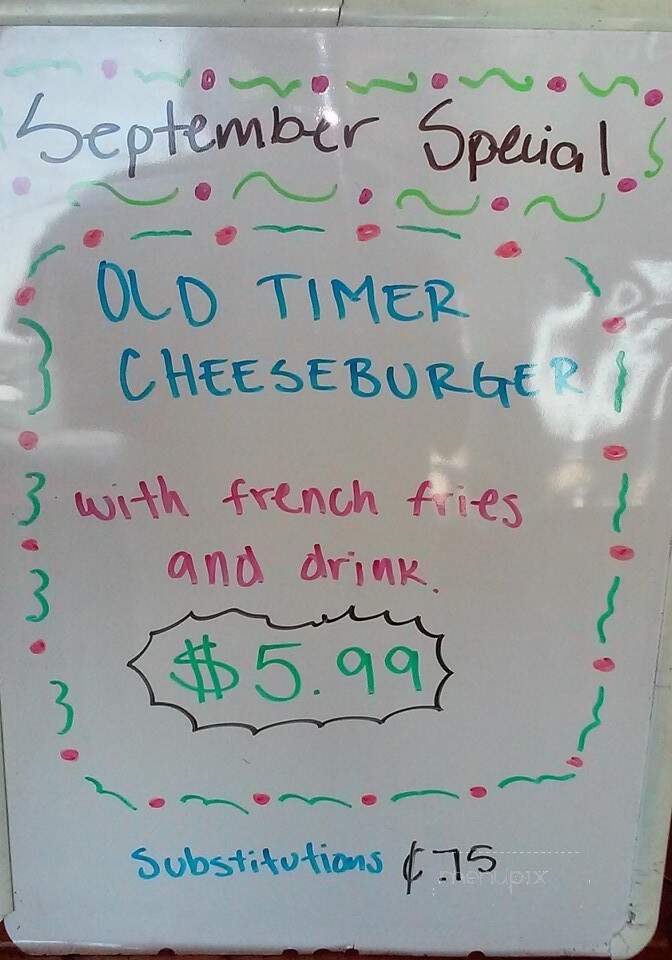 September Special
OLD TIMER
CHEESEBURGER
with french fries
and drink.
$5.99
Substitutions ¢75
menupix